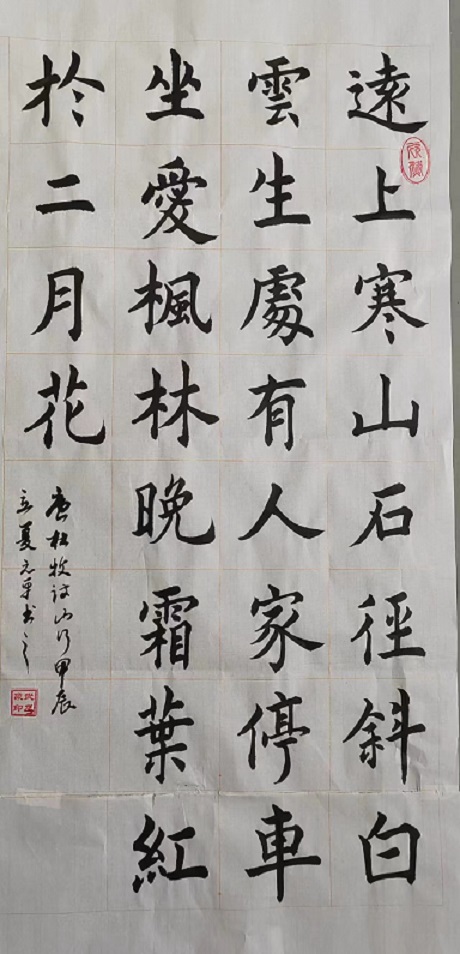 遠上寒山石徑斜白
雲生處有人家停車
坐愛楓林晚霜葉紅
於二月花
唐杜牧詩山行甲辰
立夏志軍书之